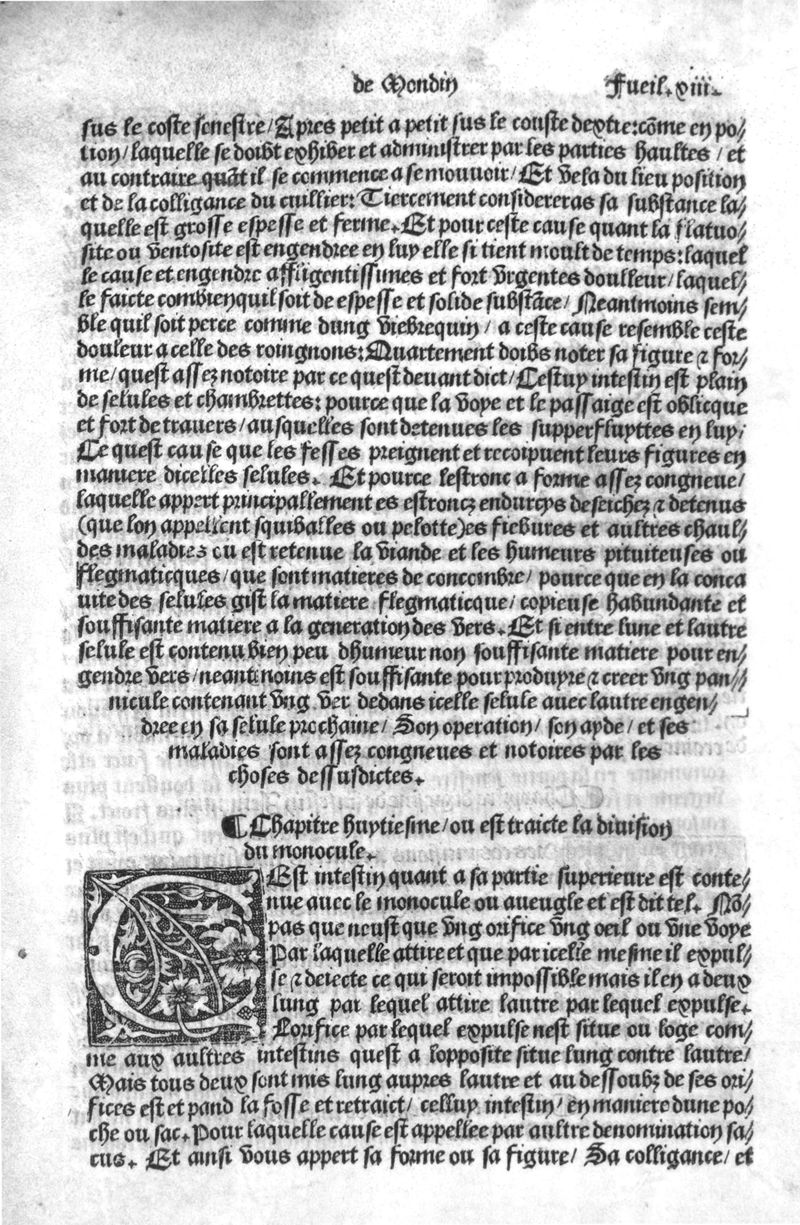 de Mondin Fueil. xiii.
sus le coste senestre/ Apres petit a petit sus le couste dextre: cõme en po//
tion/ laquelle se doibt exhiber et administrer par les parties haultes / et
au contraire quãt il se commence a se mouvoir/ Et vela du lieu position
et de la colligance du cuillier: Tiercement considereras sa substance la//
quelle est grosse espesse et ferme. Et pour ceste cause quant la flatuo//
site ou ventosite est engendree en luy elle si tient moult de temps: laquel
le cause et engendre affligentissimes et fort vrgentes doulleur/ laquel//
le faicte combien quil soit de espesse et solide substãce/ Neantmoins sem//
ble quil soit perce comme dung viebrequin/ a ceste cause resemble ceste
douleur a celle des roingnons: Quartement doibs noter sa figure ⁊ for//
me/ quest assez notoire par ce quest deuant dict/ Cestuy intestin est plain
de selules et chambrettes: pource que la voye et le passaige est oblicque
et fort de trauers/ ausquelles sont detenues les supperfluyttes en luy/
Ce quest cause que les fesses preignent et recoipuent leurs figures en
maniere dicelles selules. Et pource lestronc a forme assez congneue/
laquelle appert principallement es estroncz endurcys deseichez ⁊ detenus
(que lon appellent squiballes ou pelotte)es fiebures et aultres chaul//
des maladies ou est retenue la viande et les humeurs pituiteuses ou
flegmaticques/ que sont matieres de concombre/ pource que en la conca
uite des selules gist la matiere flegmaticque/ copieuse habundante et
souffisante matiere a la generation des vers. Et si entre lune et lautre
selule est contenu bien peu dhumeur non souffisante matiere pour en//
gendre vers/ neantmoins est souffisante pour produyre ⁊ creer vng pan//
nicule contenant vng ver dedans icelle selule auec lautre engen/
dree en sa selule prochaine/ Son operation/ son ayde/ et ses
maladies sont assez congneues et notoires par les
choses dessusdictes.
¶ Chapitre huytiesme/ ou est traicte la diuision
du monocule.
CEst intestin quant a sa partie superieure est conte//
nue auec le monocule ou aueugle et est dit tel. Nõ//
pas que neust que vng orifice vng oeil ou vne voye
Par laquelle attire et que par icelle mesme il expul//
se ⁊ deiecte ce qui seroit impossible mais il en a deux
lung par lequel attire lautre par lequel expulse.
Lorifice par lequel expulse nest situe ou loge com//
me aux aultres intestins quest a lopposite situe lung contre lautre/
Mais tous deux sont mis lung aupres lautre et au dessoubz de ses ori//
fices est et pand la fosse et retraict/ celluy intestin/ en maniere dune po//
che ou sac. Pour laquelle cause est appellee par aultre denomination sa//
cus. Et ainsi vous appert sa forme ou sa figure/ Sa colligance/ et